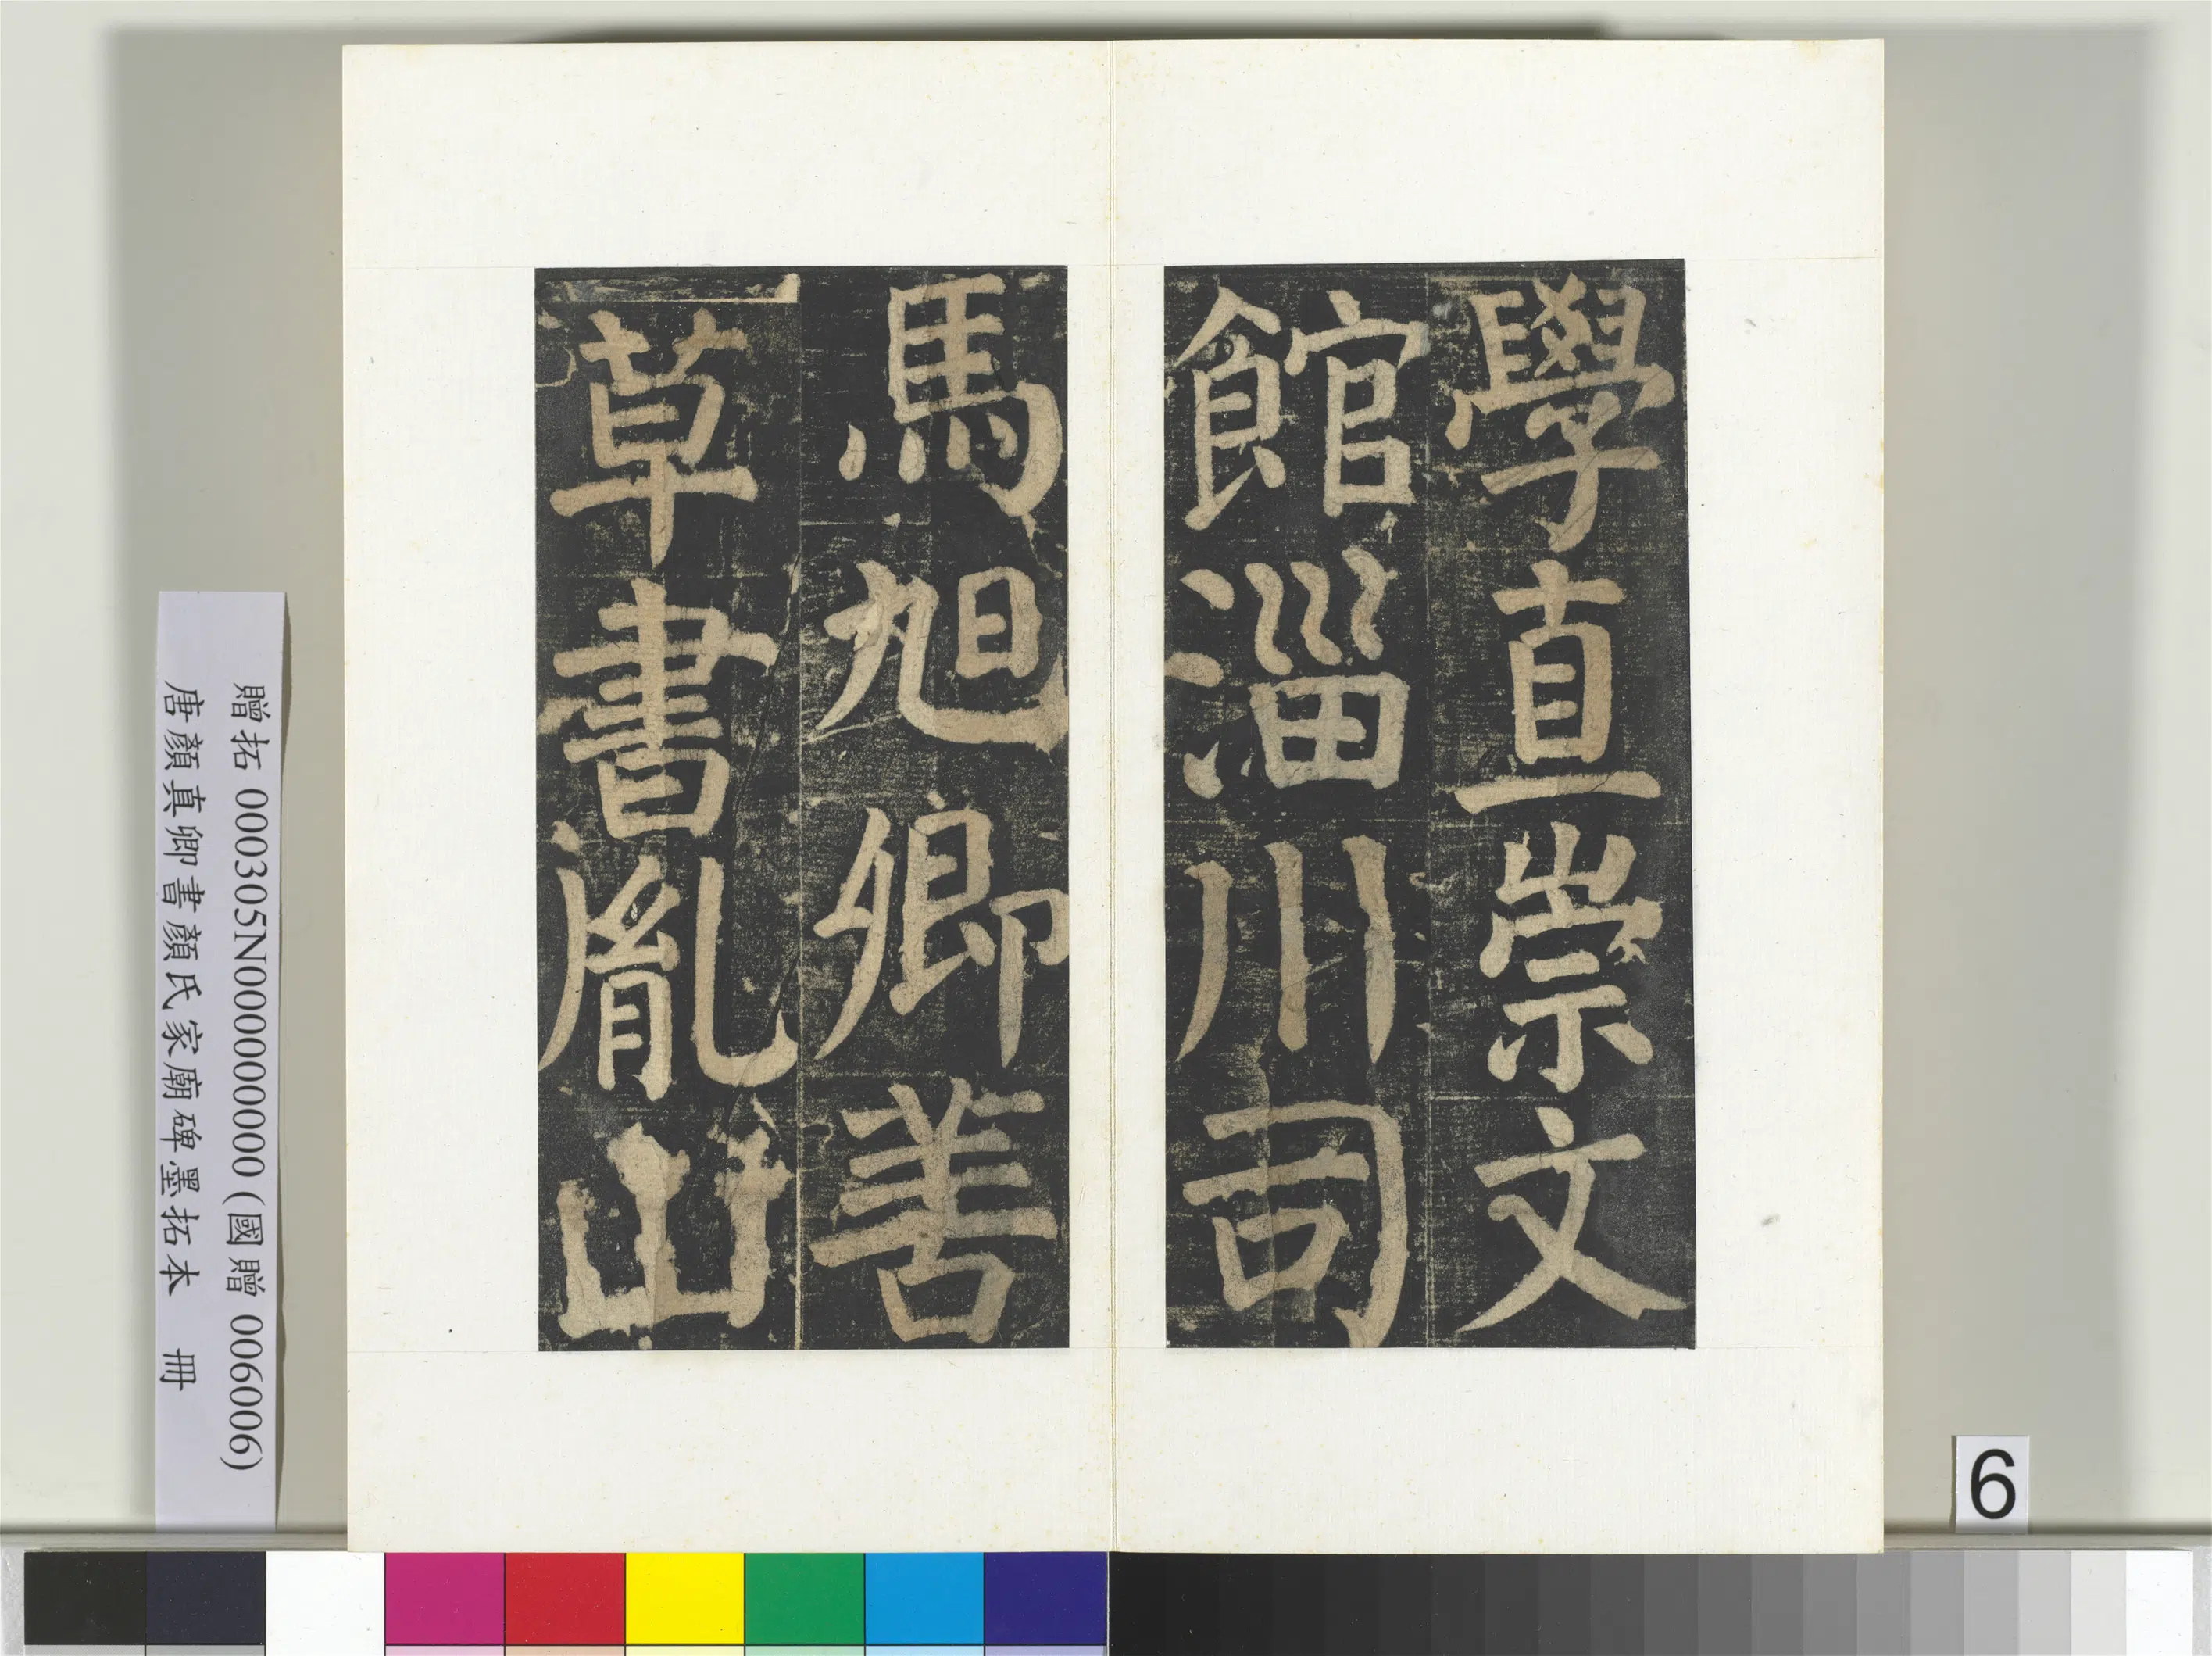 學直崇文
館淄川司
馬旭卿善
草書胤山
贈拓 000305N000000000 (國贈 006006)
唐顏真卿書顏氏家廟碑墨拓本 冊
6